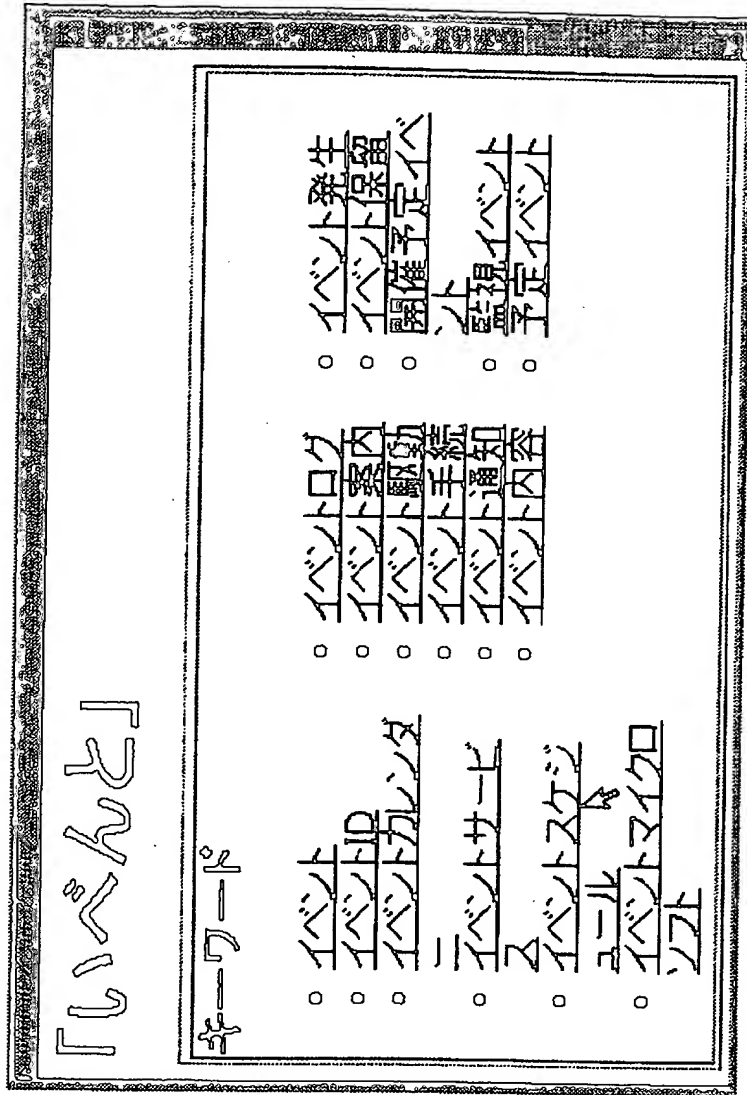 「いべんと」
キーワード
○ イベント
○ イベントID
○ イベントカレンダ
ー
○ イベントサービ
ス
○ イベントスケジ
ュール
○ イベントマイクロ
ソフト
○ イベントログ
○ イベント案内
○ イベント駆動
○ イベント手続
○ イベント通知
○ イベント内容
○ イベント発生
○ イベント保留
○ 開催予定イベ
ント
○ 監視イベント
○ 予定イベント